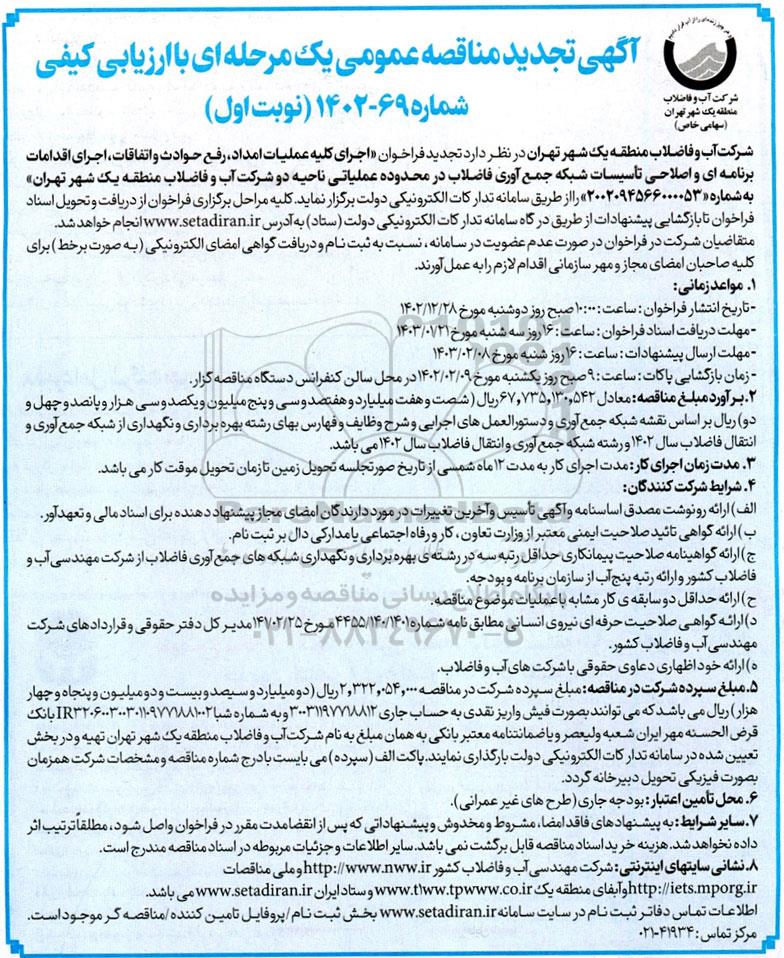 آگهی تجدید مناقصه عمومی یک مرحله ای با ارزیابی کیفی
شماره ۶۹-۱۴۰۲ (نوبت اول)
شرکت آب و فاضلاب
منطقه یک شهر تهران
(سهامی خاص)
شرکت آب و فاضلاب منطقه یک شهر تهران در نظر دارد تجدید فراخوان «اجرای کلیه عملیات امداد، رفع حوادث و اتفاقات، اجرای اقدامات
برنامه ای و اصلاحی تأسیسات شبکه جمع آوری فاضلاب در محدوده عملیاتی ناحیه دو شرکت آب و فاضلاب منطقه یک شهر تهران»
به شماره «۲۰۰۲۰۹۴۵۶۶۰۰۰۰۵۳» را از طریق سامانه تدارکات الکترونیکی دولت برگزار نماید. کلیه مراحل برگزاری فراخوان از دریافت و تحویل اسناد
فراخوان تا بازگشایی پیشنهادات از طریق درگاه سامانه تدارکات الکترونیکی دولت (ستاد) به آدرس www.setadiran.ir انجام خواهد شد.
متقاضیان شرکت در فراخوان در صورت عدم عضویت در سامانه، نسبت به ثبت نام و دریافت گواهی امضای الکترونیکی (به صورت برخط) برای
کلیه صاحبان امضای مجاز و مهر سازمانی اقدام لازم را به عمل آورند.
۱. مواعد زمانی:
-تاریخ انتشار فراخوان: ساعت: ۱۰:۰۰ صبح روز دوشنبه مورخ ۱۴۰۲/۱۲/۲۸
-مهلت دریافت اسناد فراخوان: ساعت: ۱۶ روز سه شنبه مورخ ۱۴۰۳/۰۱/۲۱
-مهلت ارسال پیشنهادات: ساعت: ۱۶ روز شنبه مورخ ۱۴۰۳/۰۲/۰۸
- زمان بازگشایی پاکات: ساعت: ۹ صبح روز یکشنبه مورخ ۱۴۰۲/۰۲/۰۹ در محل سالن کنفرانس دستگاه مناقصه گزار.
۲.برآورد مبلغ مناقصه: معادل ۶۷,۷۳۵,۱۳۰,۵۴۲ ریال (شصت و هفت میلیارد و هفتصد و سی و پنج میلیون و یکصد و سی هزار و پانصد و چهل و
دو) ریال بر اساس نقشه شبکه جمع آوری و دستورالعمل های اجرایی و شرح وظایف و فهارس بهای رشته بهره برداری و نگهداری از شبکه جمع آوری و
انتقال فاضلاب سال ۱۴۰۲ و رشته شبکه جمع آوری و انتقال فاضلاب سال ۱۴۰۲ می باشد.
۳. مدت زمان اجرای کار: مدت اجرای کار به مدت ۱۲ ماه شمسی از تاریخ صورتجلسه تحویل زمین تا زمان تحویل موقت کار می باشد.
۴.شرایط شرکت کنندگان:
الف) ارائه رونوشت مصدق اساسنامه و آگهی تأسیس و آخرین تغییرات در مورد دارندگان امضای مجاز پیشنهاد دهنده برای اسناد مالی و تعهدآور.
ب) ارائه گواهی تائید صلاحیت ایمنی معتبر از وزارت تعاون، کار و رفاه اجتماعی یا مدارکی دال بر ثبت نام.
ج) ارائه گواهینامه صلاحیت پیمانکاری حداقل رتبه سه در رشته ی بهره برداری و نگهداری شبکه های جمع آوری فاضلاب از شرکت مهندسی آب و
فاضلاب کشور و ارائه رتبه پنج آب از سازمان برنامه و بودجه.
ح) ارائه حداقل دو سابقه ی کار مشابه با عملیات موضوع مناقصه.
د) ارائه گواهی صلاحیت حرفه ای نیروی انسانی مطابق نامه شماره ۴۴۵۵/۱۴۰/۱۴۰۱ مورخ ۱۴۰۲/۰۲/۲۵ مدیر کل دفتر حقوقی و قراردادهای شرکت
مهندسی آب و فاضلاب کشور.
ه) ارائه خوداظهاری دعاوی حقوقی با شرکت های آب و فاضلاب.
۵.مبلغ سپرده شرکت در مناقصه: مبلغ سپرده شرکت در مناقصه ۲,۳۲۲,۰۵۴,۰۰۰ ریال (دو میلیارد و سیصد و بیست و دو میلیون و پنجاه و چهار
هزار) ریال می باشد که می توانند بصورت فیش واریز نقدی به حساب جاری ۳۰۰۳۱۱۹۷۷۱۸۸۱۲ و به شماره شبا IR۳۲۰۶۰۰۳۰۰۳۰۱۱۰۹۷۷۱۸۸۱۰۰۲ بانک
قرض الحسنه مهر ایران شعبه ولیعصر و یا ضمانتنامه معتبر بانکی به همان مبلغ به نام شرکت آب و فاضلاب منطقه یک شهر تهران تهیه و در بخش
تعیین شده در سامانه تدارکات الکترونیکی دولت بارگذاری نمایند. پاکت الف (سپرده) می بایست با درج شماره مناقصه و مشخصات شرکت همزمان
بصورت فیزیکی تحویل دبیرخانه گردد.
۶. محل تأمین اعتبار: بودجه جاری (طرح های غیر عمرانی).
۷.سایر شرایط: به پیشنهادهای فاقد امضا، مشروط و مخدوش و پیشنهاداتی که پس از انقضا مدت مقرر در فراخوان واصل شود، مطلقاً ترتیب اثر
داده نخواهد شد. هزینه خرید اسناد مناقصه قابل برگشت نمی باشد. سایر اطلاعات و جزئیات مربوطه در اسناد مناقصه مندرج است.
۸.نشانی سایتهای اینترنتی: شرکت مهندسی آب و فاضلاب کشور http://www.nww.ir و ملی مناقصات
http://iets.mporg.ir و آبفای منطقه یک www.t\ww.tpwww.co.ir و ستاد ایران www.setadiran.ir می باشد.
اطلاعات تماس دفاتر ثبت نام در سایت سامانه www.setadiran.ir بخش ثبت نام/پروفایل تامین کننده/مناقصه گر موجود است.
مرکز تماس: ۴۱۹۳۴-۰۲۱
ParsNamadData
پایگاه اطلاع رسانی مناقصه و مزایده
۰۲۱-۸۸۳۴۹۶۷۰-۵